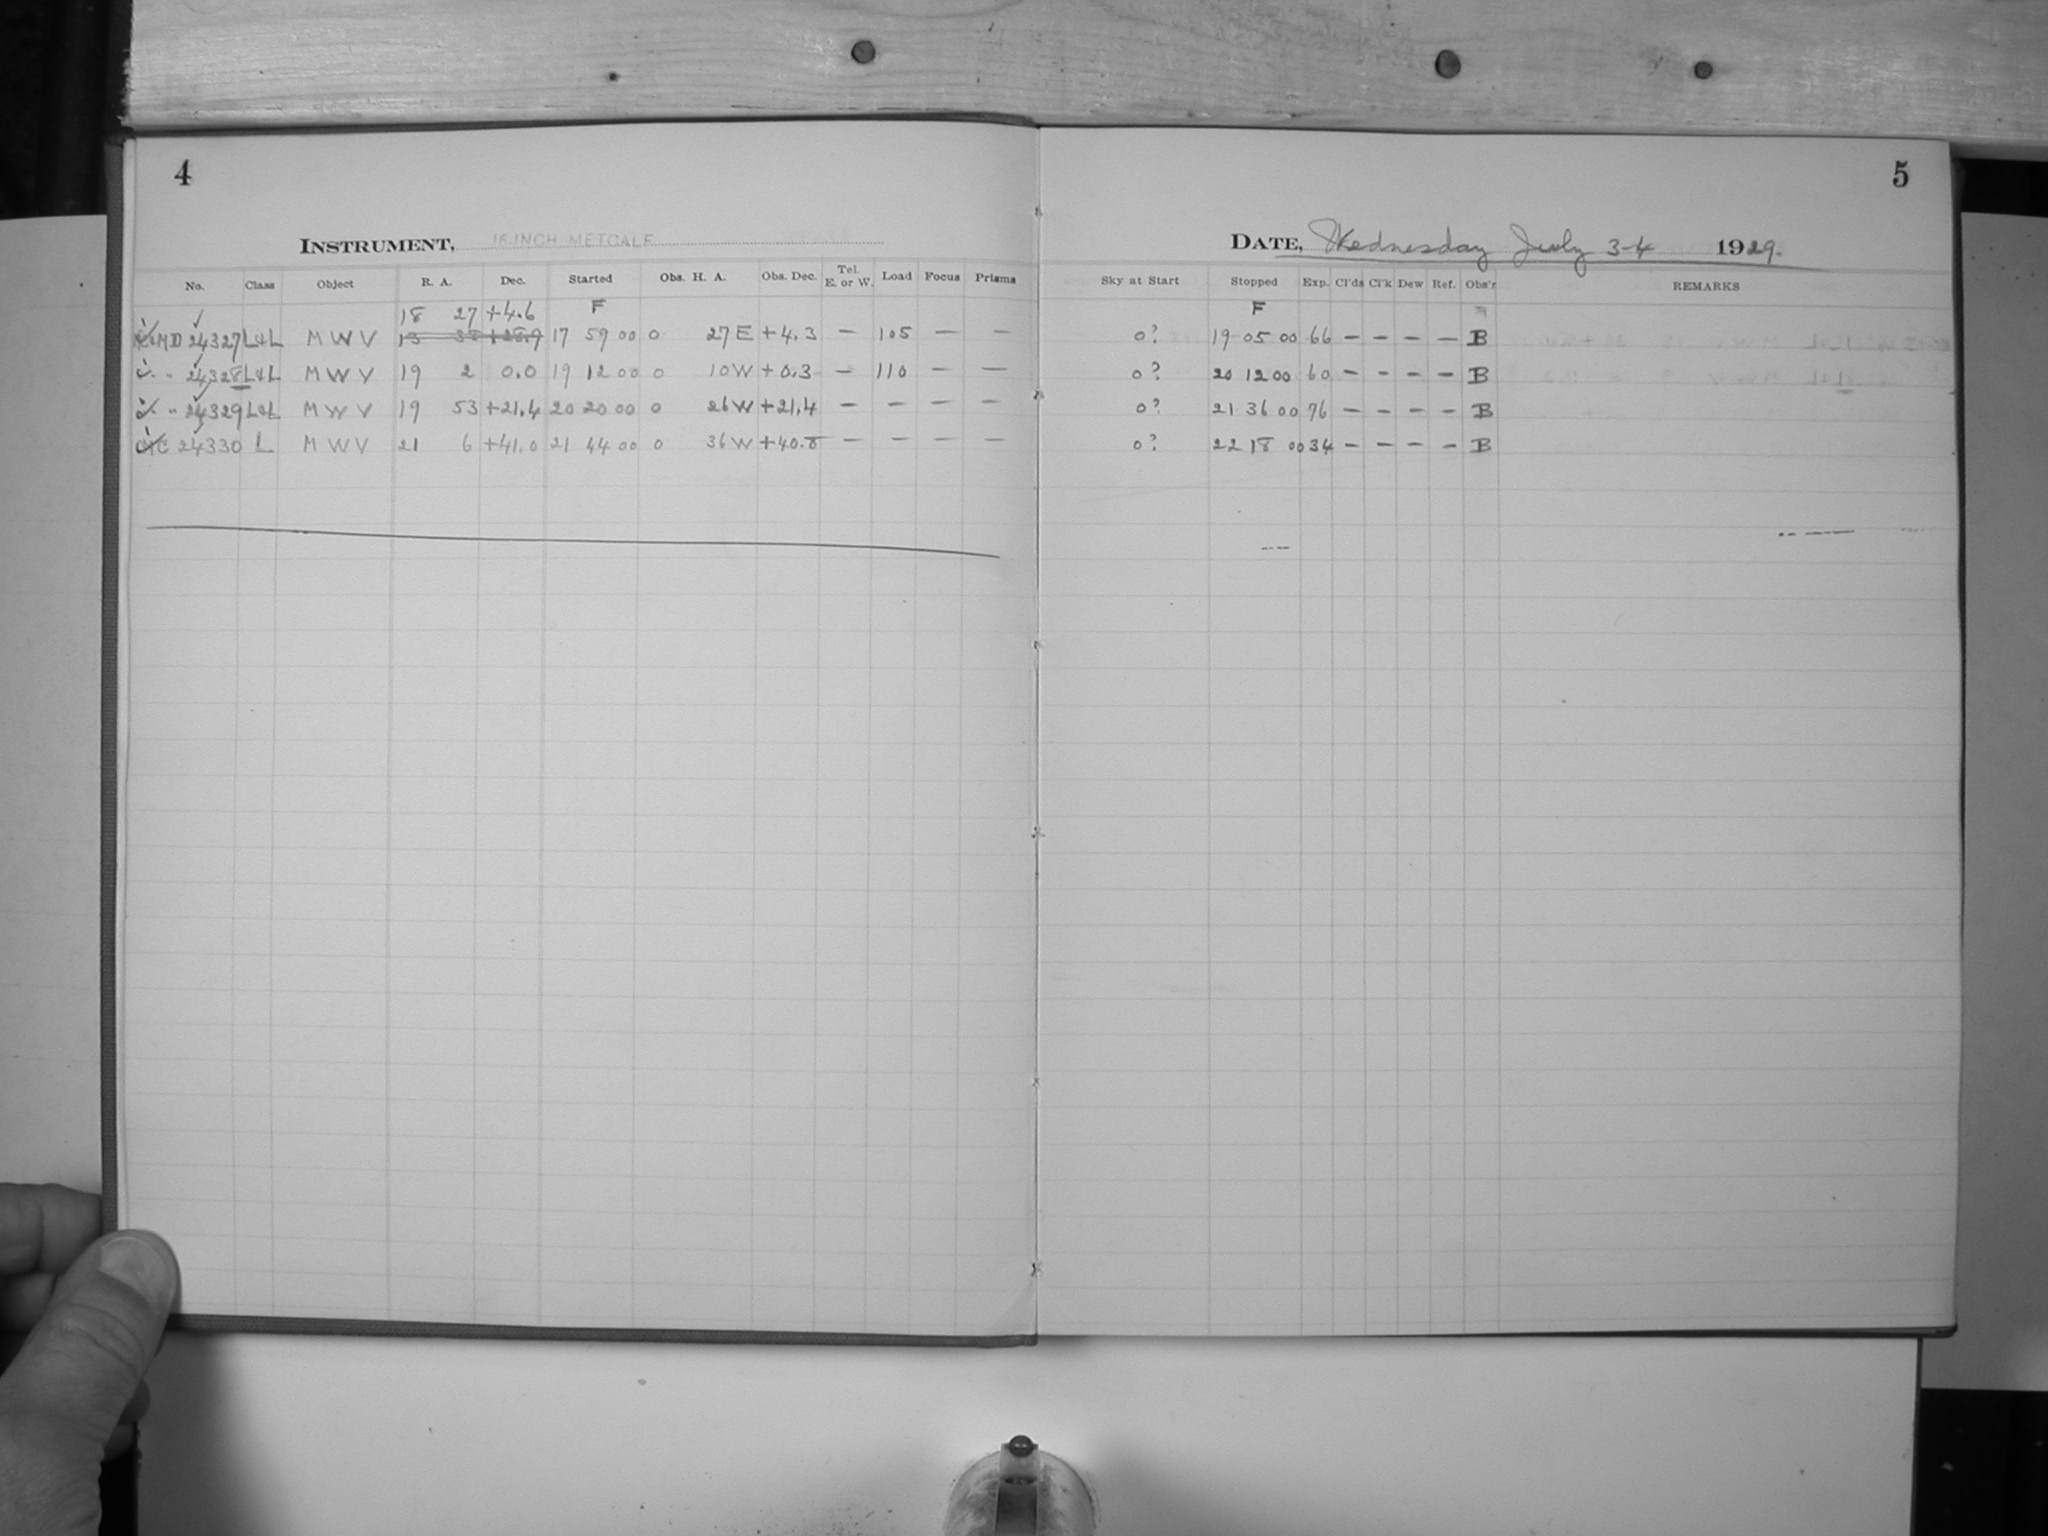 4
5
INSTRUMENT, 16-INCH METCALF
DATE, Wednesday July 3-4 1929.
No. Class Object R. A. Dec. Started Obs. H. A. Obs. Dec. Tel. E. or W. Load Focus Prisms Sky at Start Stopped Exp. Cl'ds Cl'k Dew Ref. Obs'r REMARKS
18 27 +4.6 F F
MD 24327 L&L M W V 17 59 00 0 27 E +4.3 — 105 — — 0? 19 05 00 66 — — — — B
" 24328 L&L M W V 19 2 0.0 19 12 00 0 10 W +0.3 — 110 — — 0? 20 12 00 60 — — — — B
" 24329 L&L M W V 19 53 +21.4 20 20 00 0 26 W +21.4 — — — — 0? 21 36 00 76 — — — — B
MC 24330 L M W V 21 6 +41.0 21 44 00 0 36 W +40.8 — — — — 0? 22 18 00 34 — — — — B